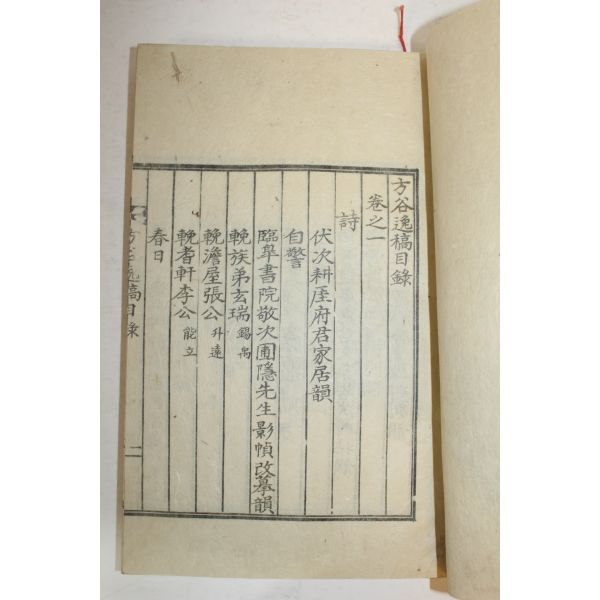 方谷逸稿目錄
卷之一
詩
伏次耕厓府君家居韻
自警
臨皐書院敬次圃隱先生影幀改摹韻
輓族弟玄瑞 錫禹
輓澹屋張公 升遠
輓耆軒李公 能立
春日
方谷逸稿目錄